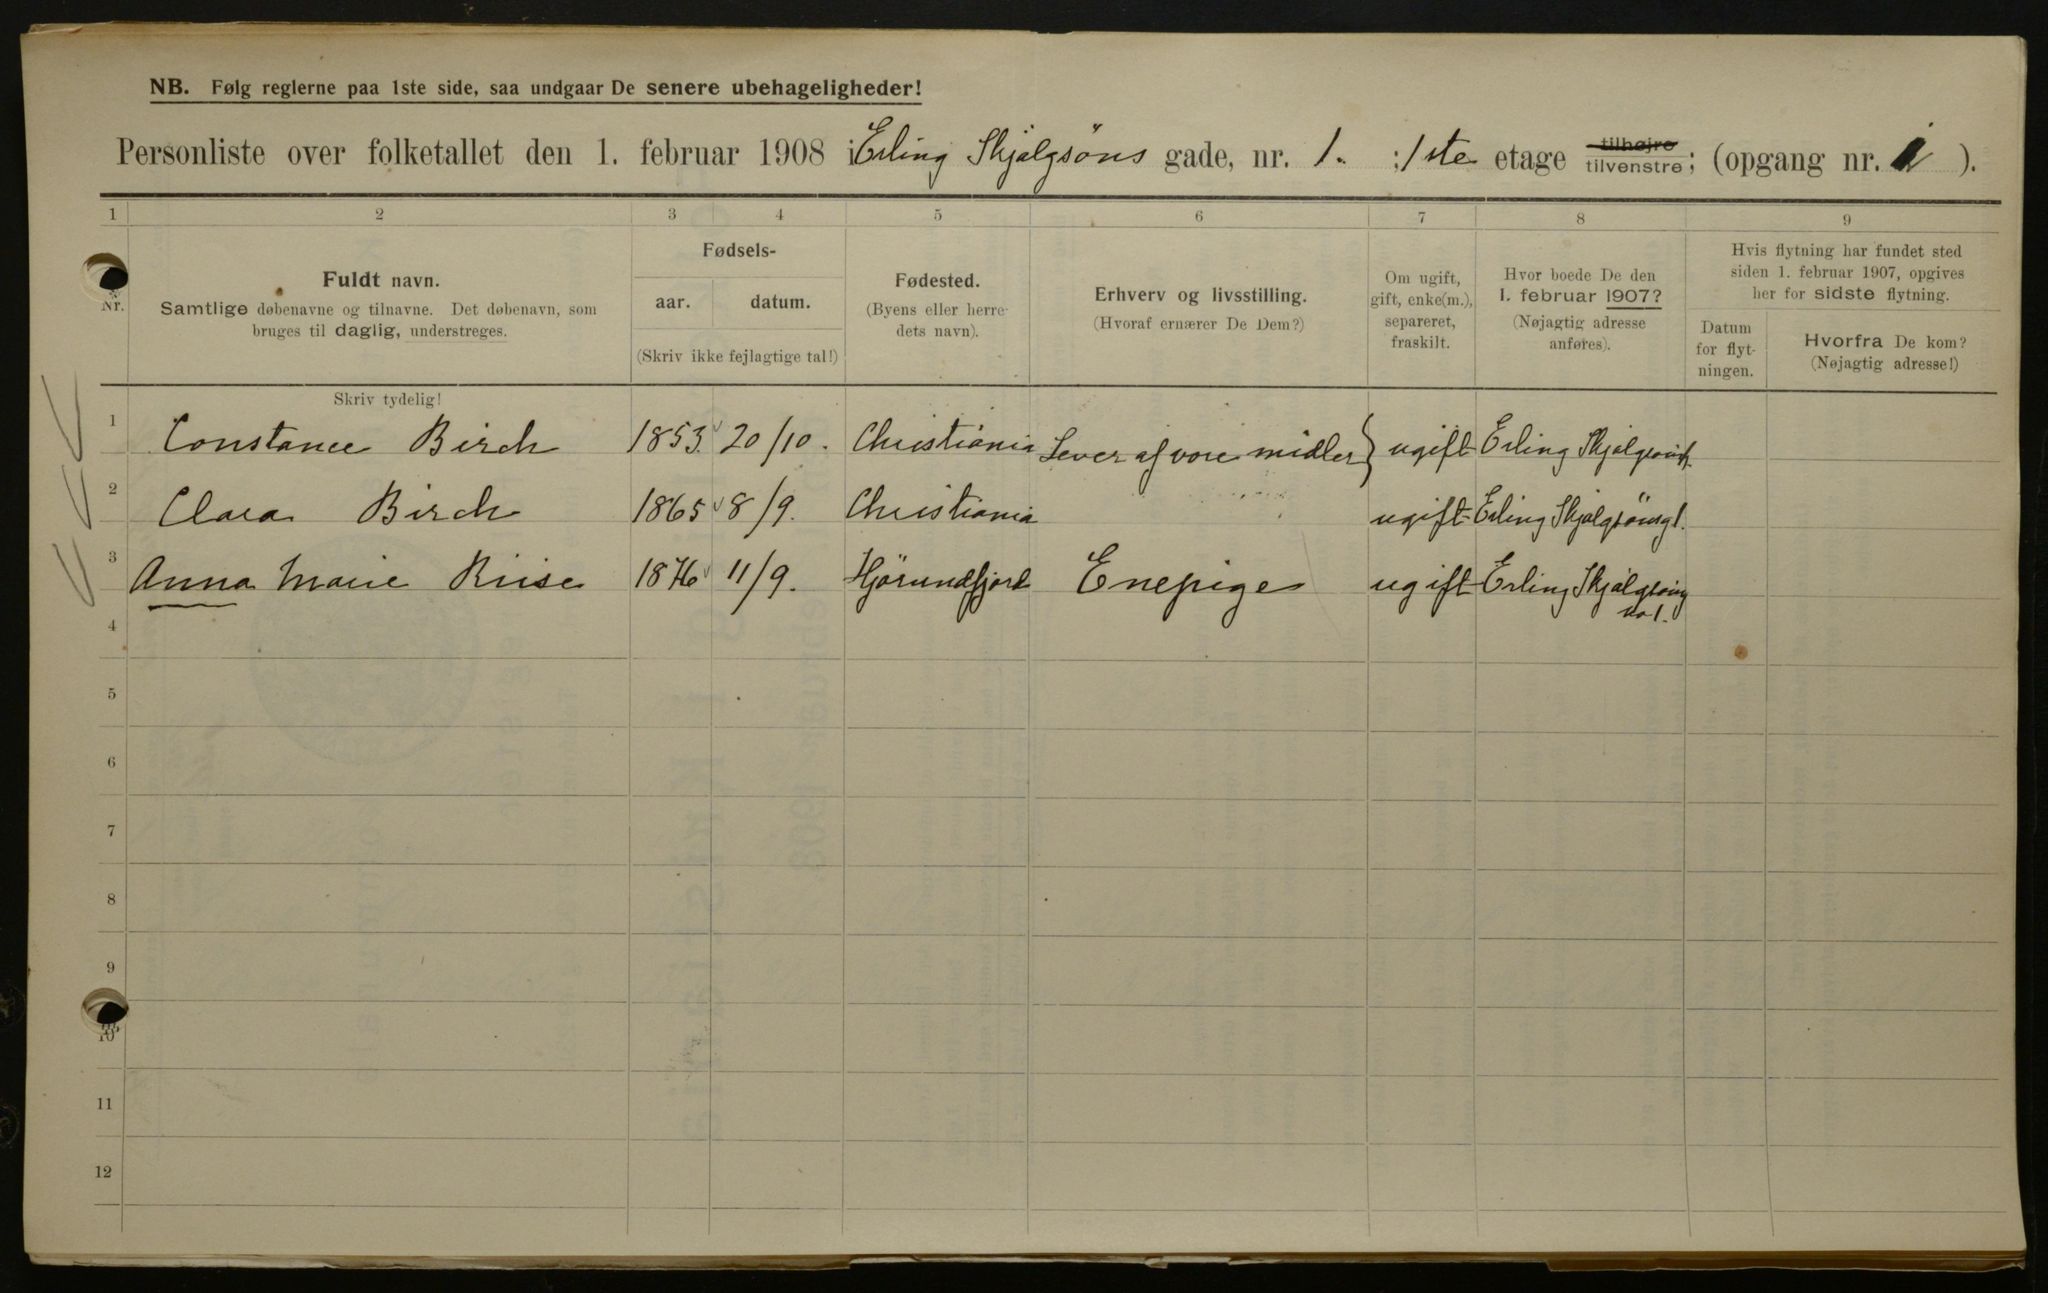 NB. Følg reglerne paa 1ste side, saa undgaar De senere ubehageligheder!
Personliste over folketallet den 1. februar 1908 i Erling Skjalgsöns gade, nr. 1. ; 1ste etage tilhøjre tilvenstre; (opgang nr. 1 ).
1 2 3 4 5 6 7 8 9
Nr.
Fuldt navn.
Samtlige døbenavne og tilnavne. Det døbenavn, som
bruges til daglig, understreges.
Skriv tydelig!
Fødsels-
aar. datum.
(Skriv ikke fejlagtige tal!)
Fødested.
(Byens eller herre-
dets navn).
Erhverv og livsstilling.
(Hvoraf ernærer De Dem?)
Om ugift,
gift, enke(m.),
separeret,
fraskilt.
Hvor boede De den
1. februar 1907?
(Nøjagtig adresse
anføres).
Hvis flytning har fundet sted
siden 1. februar 1907, opgives
her for sidste flytning.
Datum
for flyt-
ningen.
Hvorfra De kom?
(Nøjagtig adresse!)
1 Constance Birch 1853. 20/10. Christiania Lever af vore midler } ugift Erling Skjalgsöns
2 Clara Birch 1865 8/9. Christiania ugift Erling Skjalgsönsg 1.
3 Anna Marie Riise 1876 11/9. Hjörundfjord Enepige ugift Erling Skjalgsönsg
no 1.
4
5
6
7
8
9
10
11
12